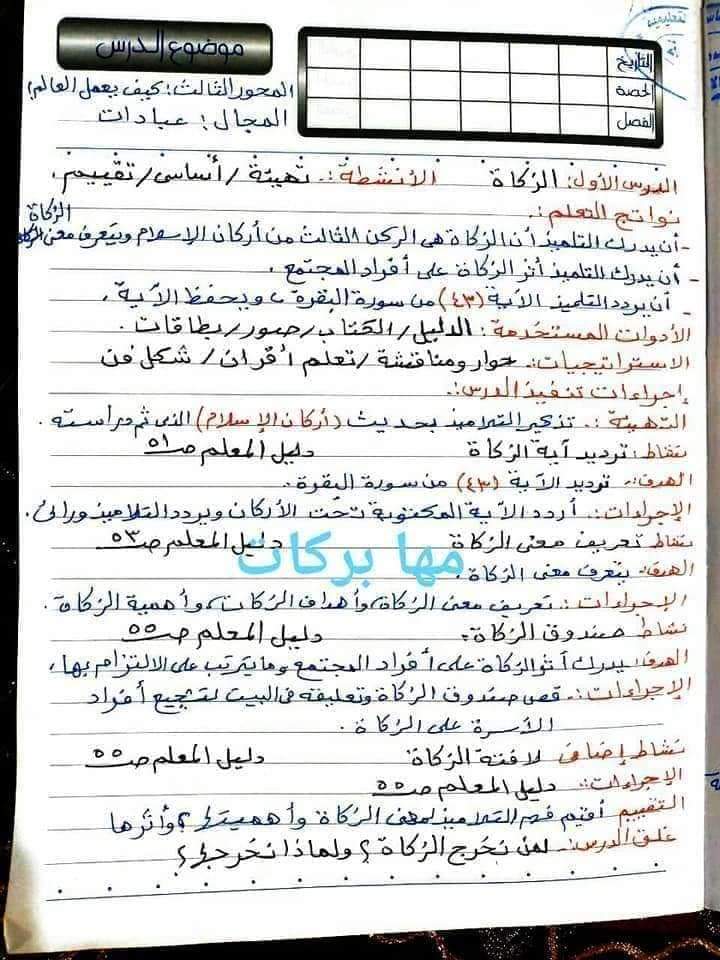 موضوع الدرس
التاريخ
الحصة
الفصل
المحور الثالث: كيف يعمل العالم؟
المجال: عبادات
الدرس الأول: الزكاة الأنشطة:. تهيئة / أساسى / تقييم.
نواتج التعلم:.
- أن يدرك التلميذ أن الزكاة هى الركن الثالث من أركان الإسلام ويتعرف معنى الزكاة
الزكاة
- أن يدرك التلميذ أثر الزكاة على أفراد المجتمع.
- أن يردد التلميذ الآية (٤٣) من سورة البقرة، ويحفظ الآية.
الأدوات المستخدمة: الدليل / الكتاب / صور / بطاقات.
الاستراتيجيات:. حوار ومناقشة / تعلم أقران / شكل فن
إجراءات تنفيذ الدرس:.
التهيئة:. تذكير التلاميذ بحديث (أركان الإسلام) الذى تم دراسته.
نشاط: ترديد آية الزكاة دليل المعلم صـ٥١
الهدف:. ترديد الآية (٤٣) من سورة البقرة.
الإجراءات:. أردد الآية المكتوبة تحت الأركان ويردد التلاميذ ورائى.
نشاط تعريف معنى الزكاة دليل المعلم صـ٥٣
مها بركات
الهدف:. يتعرف معنى الزكاة.
الإجراءات:. تعريف معنى الزكاة، وأهداف الزكاة، وأهمية الزكاة.
نشاط صندوق الزكاة: دليل المعلم صـ٥٥
الهدف: يدرك أثر الزكاة على أفراد المجتمع وما يترتب على الالتزام بها.
الإجراءات:. قص صندوق الزكاة وتعليقه فى البيت لتشجيع أفراد
الأسرة على الزكاة.
نشاط إضافى لافتة الزكاة دليل المعلم صـ٥٥
الإجراءات:. دليل المعلم صـ٥٥
التقييم أقيم فهم التلاميذ لمعنى الزكاة وأهميتها؟ وأثرها
غلق الدرس:. لمن نخرج الزكاة؟ ولماذا نخرجها؟